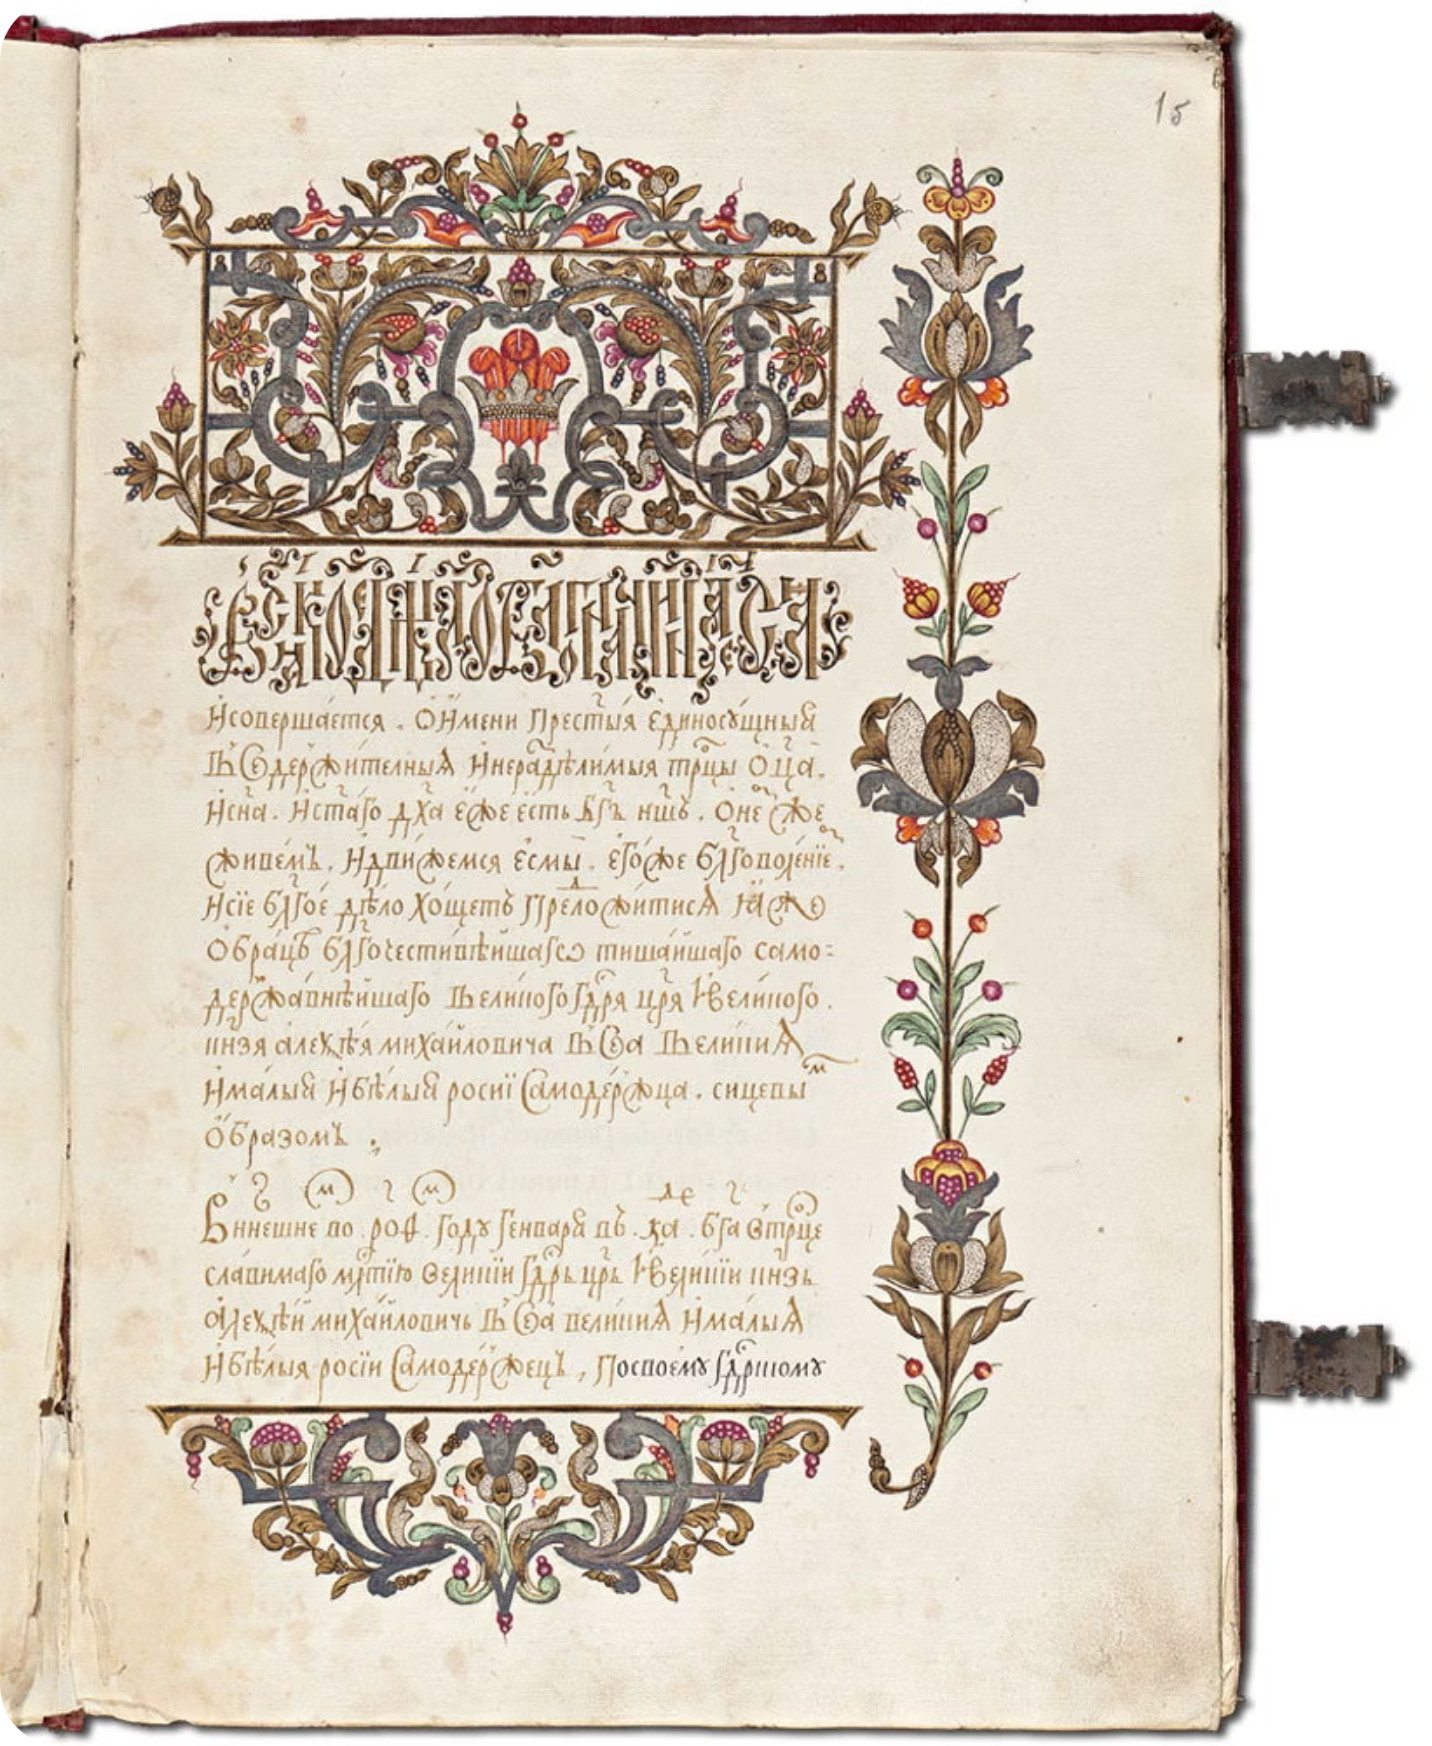 15
Всѧкое дѣло благо начинаетсѧ
И совершается . О имени Престы́я единосу́щныя
Всодержителныѧ И нераздѣлимыя трцы Оца̀ .
И сн҃а . И ст҃аго дх҃а еже есть бг҃ъ нш҃ъ . О нем же
живемъ . И движемся есмы . егоже бл҃говоленїе .
И сїе бл҃гое дѣло хощетъ Предложитисѧ
Образъ бл҃гочестивѣйшагѡ тишайшаго само-
державнѣйшаго Великого гдр҃я цр҃я И Великого .
кнзя алеѯѣя михайловича Всеа Великиѧ
И малыя И бѣлыя росиї Самодержца . сицевым
Образомъ .
В ннешнем во . роѳ . году генваря въ . ка . де . бг҃а в трⷪ҇це
славимаго млⷭ҇тїю великїи гдр҃ь цр҃ь И великїи кнзь
Алеѯѣй михайловичь Всеа великиѧ И малыѧ
И бѣлыя росїи Самодержецъ , По своемꙋ гдрⷭ҇комꙋ